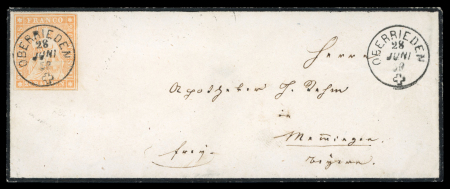 OBERRIEDEN
28
JUNI
59
OBERRIEDEN
28
JUNI
59
Herrn
Apotheker J. Rehm
in
Memmingen
Bayern
frey